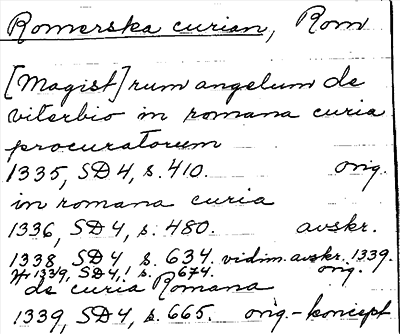 Romerska curian, Rom
[Magist]rum angelum de
viterbio in romana curia
procuratorum
1335, SD 4, s. 410. orig.
in romana curia
1336, SD 4, s. 480. avskr.
1338 SD 4 s. 634. vidim. avskr. 1339.
1339, SD 4, s. 674. orig.
de curia Romana
1339, SD 4, s. 665. orig-koncept